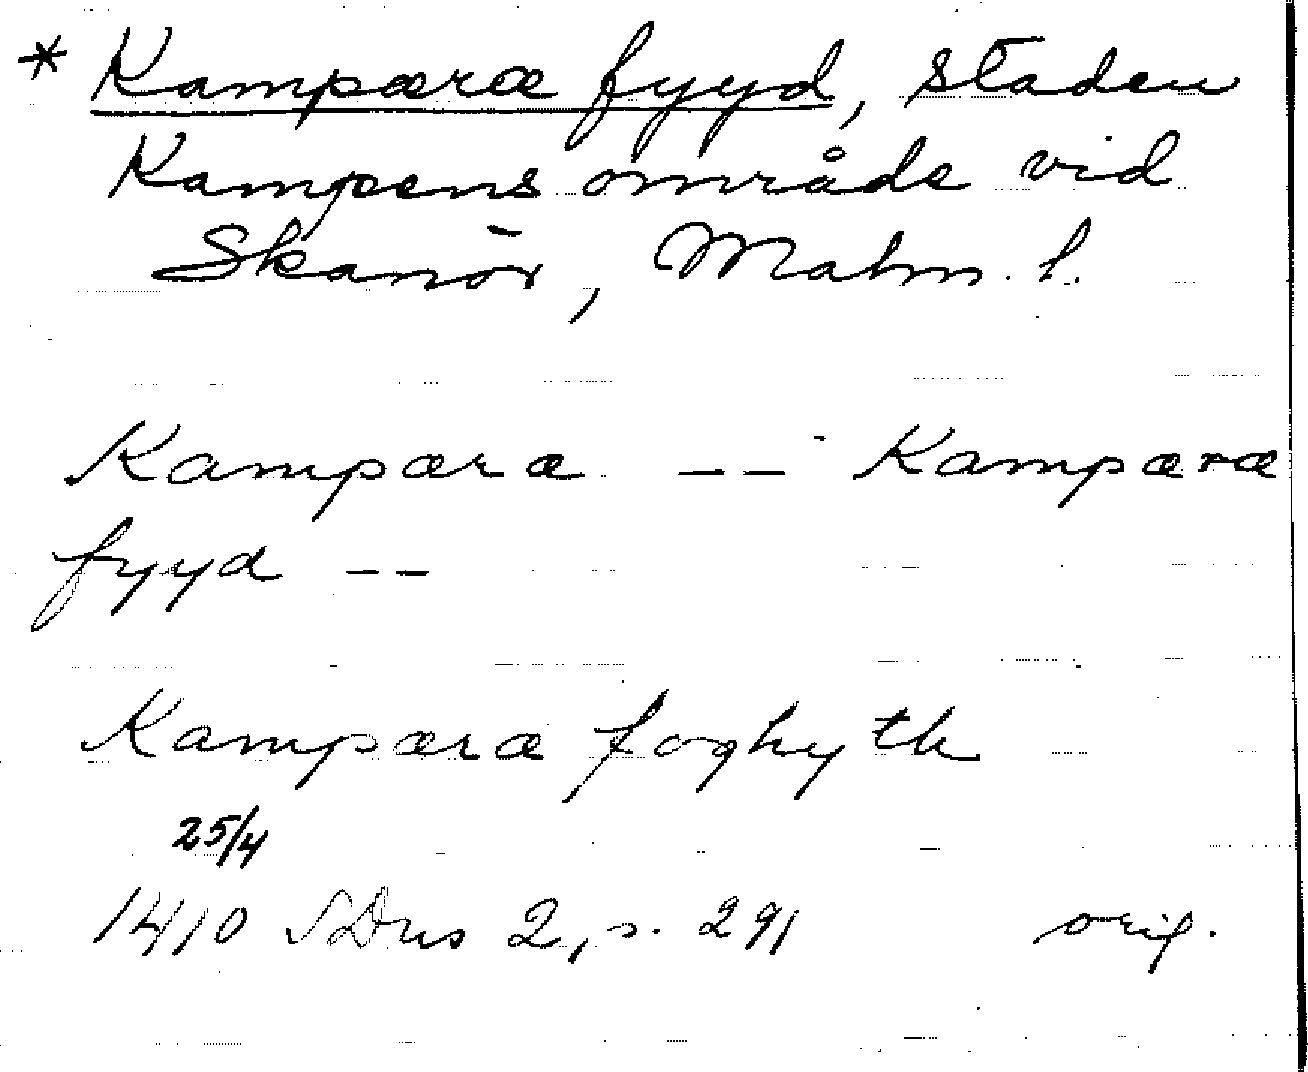 * Kampæræ fyyd, staden
Kampens område vid
Skanör, Malm. l.
Kampæra -- Kampæræ
fyyd --
Kampæræ foghyth
25/4
1410 SDns 2, s. 291 orig.